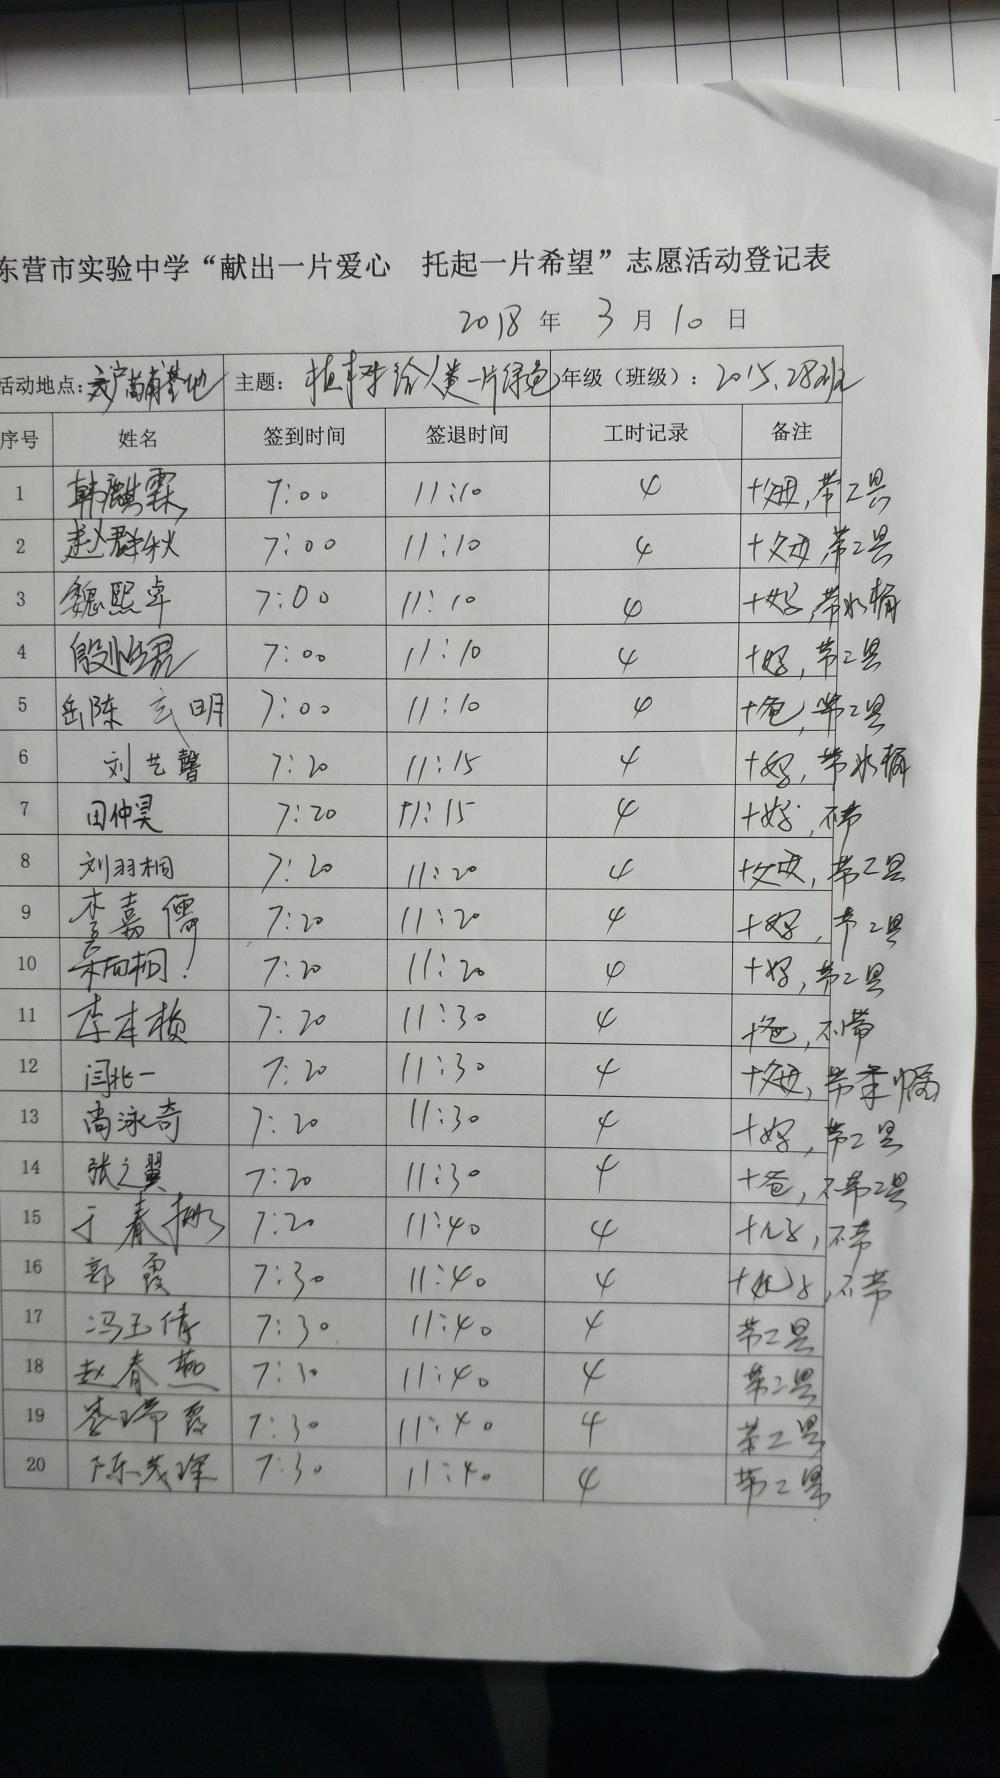 东营市实验中学“献出一片爱心 托起一片希望”志愿活动登记表
2018 年 3 月 10 日
活动地点: 基地 主题: 植树给人类一片绿色 年级（班级）: 2015.28班
序号 姓名 签到时间 签退时间 工时记录 备注
1 韩麒霖 7:00 11:10 4 +父母,带工具
2 赵群秋 7:00 11:10 4 +父母,带工具
3 魏熙卓 7:00 11:10 4 +妈,带水桶
4 7:00 11:10 4 +妈,带工具
5 岳陈玄明 7:00 11:10 4 +爸,带工具
6 刘艺馨 7:20 11:15 4 +妈,带水桶
7 田仲昊 7:20 11:15 4 +妈,不带
8 刘羽桐 7:20 11:20 4 +父母,带工具
9 李嘉儒 7:20 11:20 4 +妈,带工具
10 7:20 11:20 4 +妈,带工具
11 李本桢 7:20 11:30 4 +爸,不带
12 闫兆一 7:20 11:30 4 +父母,带
13 尚泳奇 7:20 11:30 4 +妈,带工具
14 张之翼 7:20 11:30 4 +爸,不带工具
15 于春 7:20 11:40 4 +儿子,不带
16 郭霞 7:30 11:40 4 +儿子,不带
17 冯玉倩 7:30 11:40 4 带工具
18 赵春燕 7:30 11:40 4 带工具
19 李瑞霞 7:30 11:40 4 带工具
20 陈茂琛 7:30 11:40 4 带工具